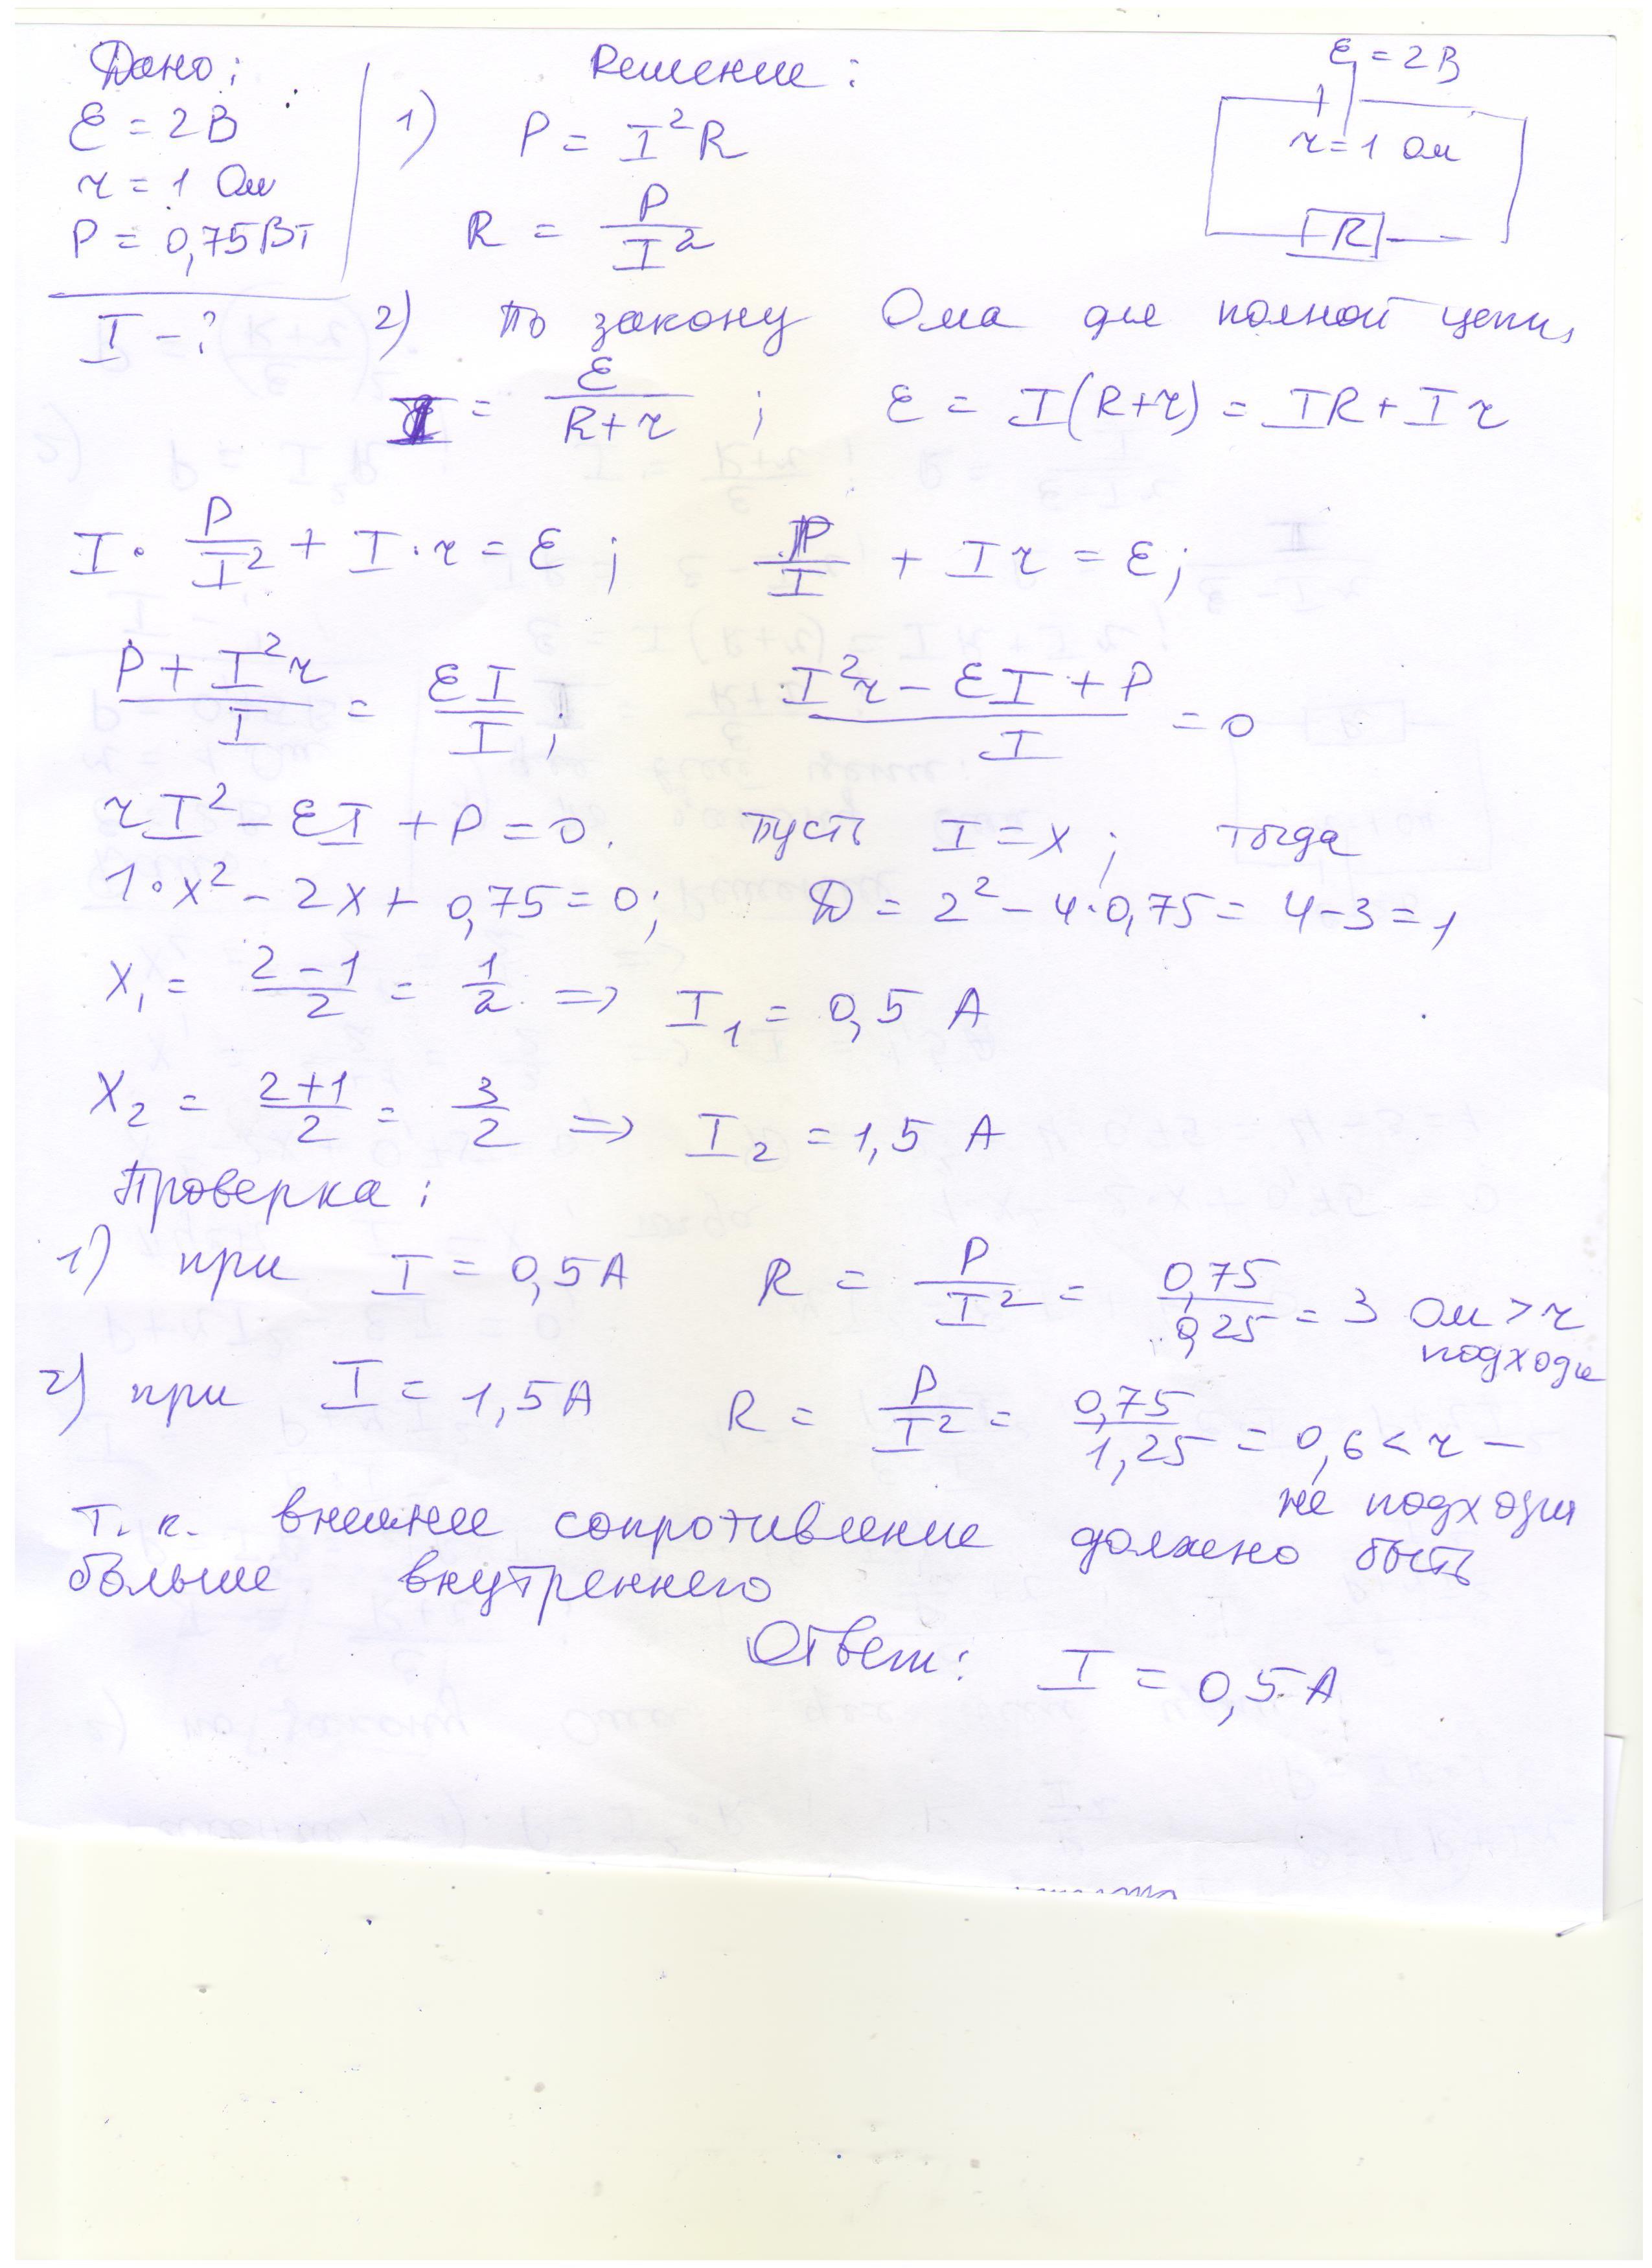 Дано:
ℰ = 2В
r = 1 Ом
P = 0,75Вт
I - ?
Решение:
1) P = I²R
R = P/I²
ℰ = 2В
r = 1 Ом
R
2) По закону Ома для полной цепи,
I = ℰ/(R+r) ; ℰ = I(R+r) = IR + Ir
I · P/I² + I·r = ℰ ; P/I + Ir = ℰ;
(P + I²r)/I = ℰI/I ; (I²r - ℰI + P)/I = 0
rI² - ℰI + P = 0. Пусть I = x ; тогда
1·x² - 2x + 0,75 = 0; D = 2² - 4·0,75 = 4-3 = 1
x₁ = (2-1)/2 = 1/2 => I₁ = 0,5 A
x₂ = (2+1)/2 = 3/2 => I₂ = 1,5 A
Проверка:
1) при I = 0,5A R = P/I² = 0,75/0,25 = 3 Ом > r
подходи
2) при I = 1,5A R = P/I² = 0,75/1,25 = 0,6 < r -
не подходи
т.к. внешнее сопротивление должно быть
больше внутреннего
Ответ: I = 0,5 A